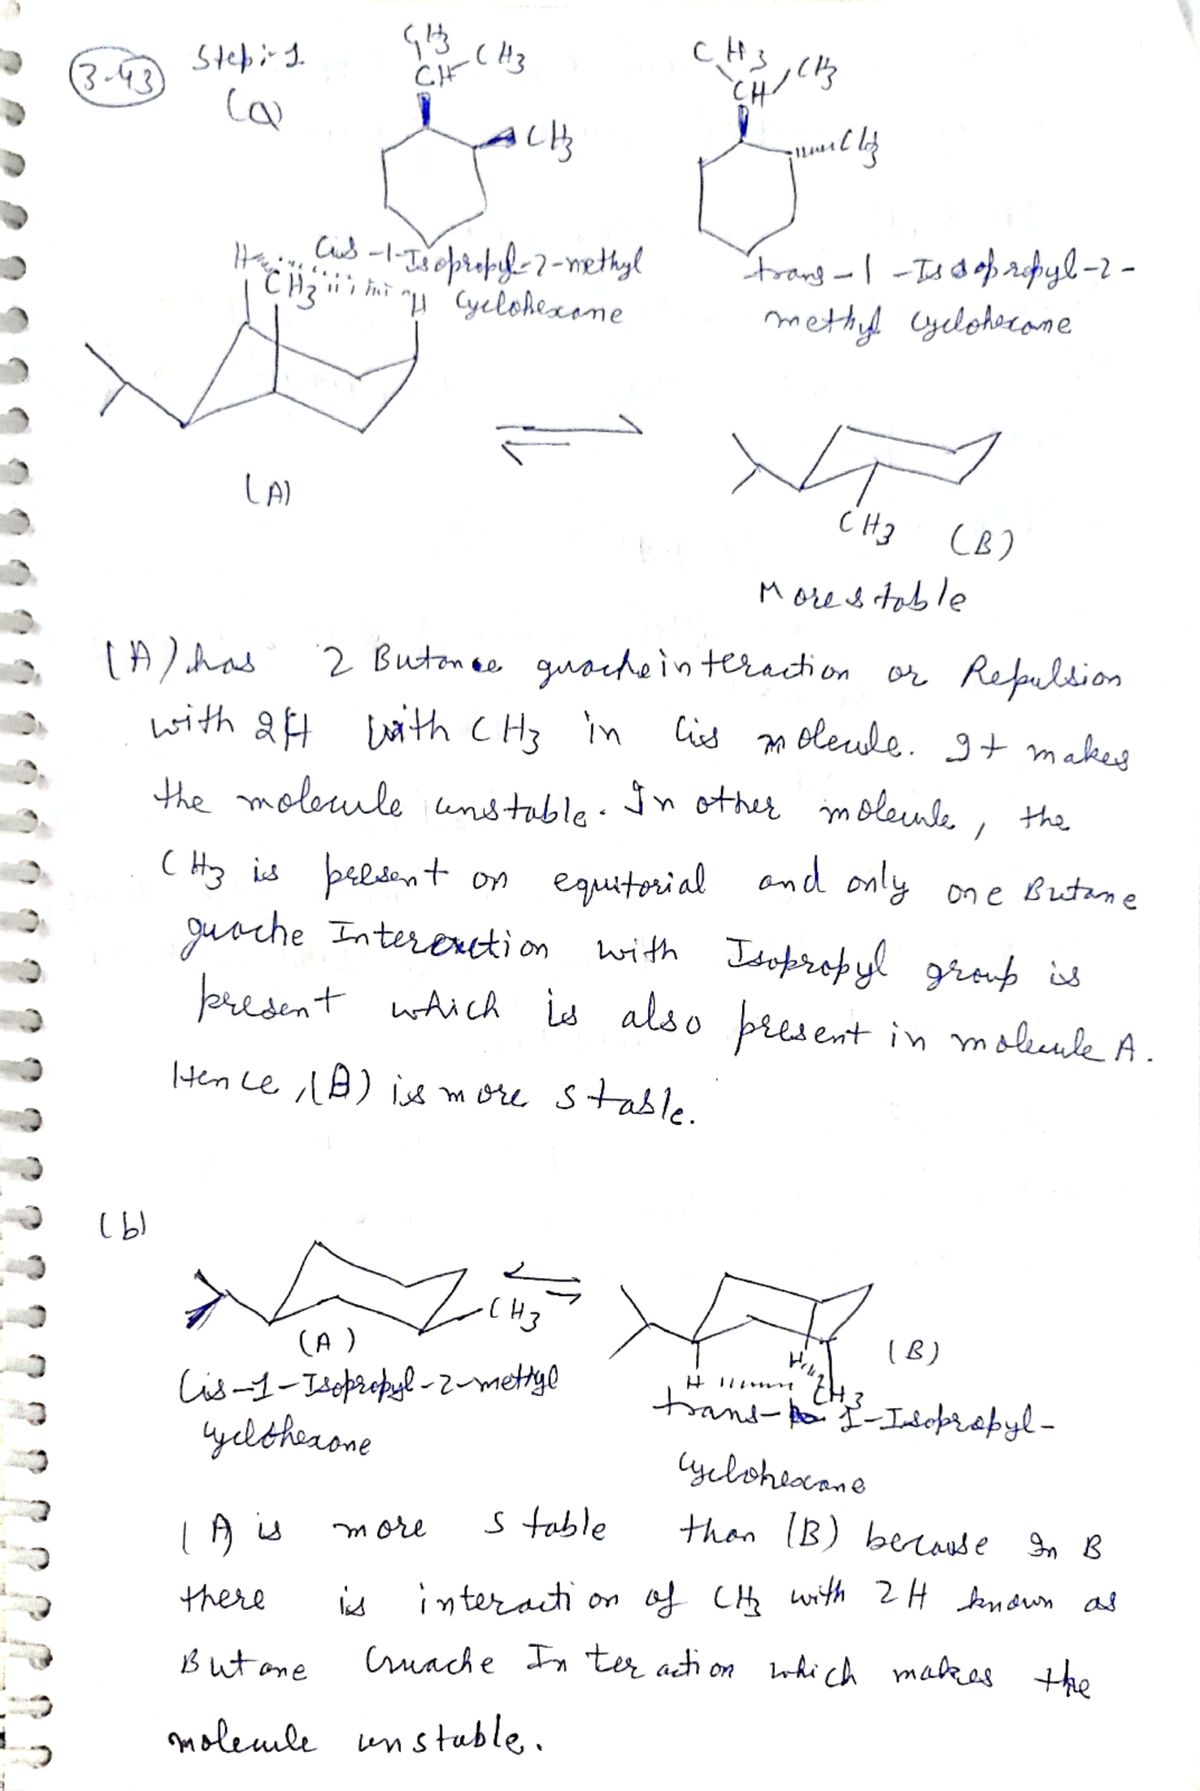 3.43 Step:-1
(a)
CH3
CH CH3
CH3
CH3
CH CH3
CH3
Cis-1-Isopropyl-2-methyl
Cyclohexane
trans-1-Isopropyl-2-
methyl cyclohexane
H
CH3 H
(A)
CH3 (B)
More stable
(A) has 2 Butane guache interaction or Repulsion
with 2H with CH3 in Cis molecule. It makes
the molecule unstable. In other molecule, the
CH3 is present on equitorial and only one Butane
guache Interaction with Isopropyl group is
present which is also present in molecule A.
Hence, (B) is more stable.
(b)
CH3
(A)
Cis-1-Isopropyl-2-methyl
cyclohexane
(B)
H
H CH3
trans- 1-Isopropyl-
Cyclohexane
(A) is more stable than (B) because In B
there is interaction of CH3 with 2H known as
Butane Gruache Interaction which makes the
molecule unstable.